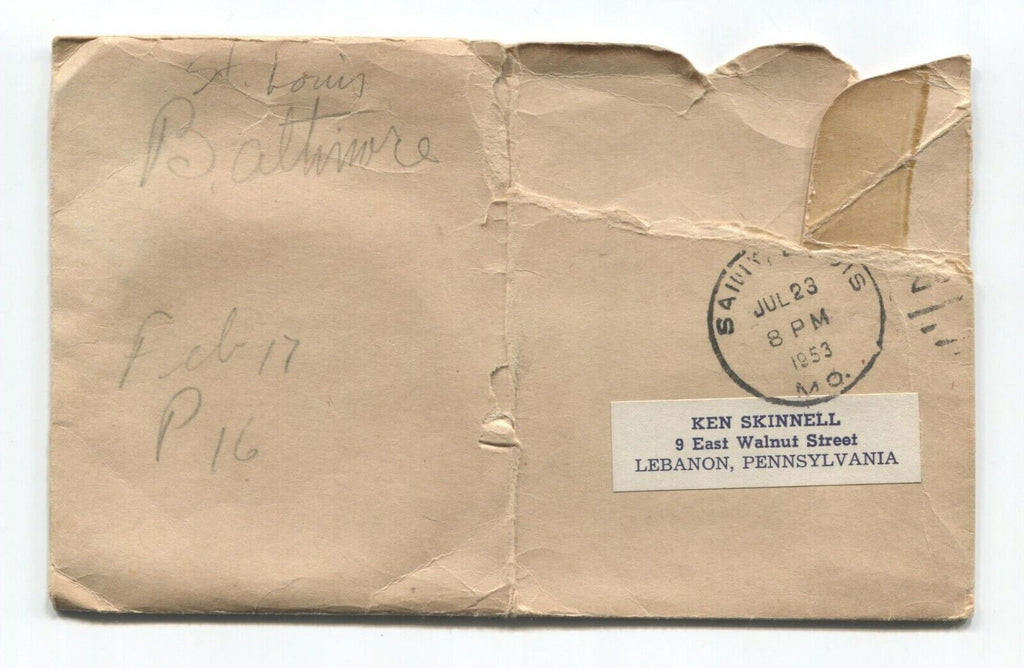 St. Louis
Baltimore
Feb 17
P 16
SAINT LOUIS
JUL 23
8 PM
1953
MO.
KEN SKINNELL
9 East Walnut Street
LEBANON, PENNSYLVANIA